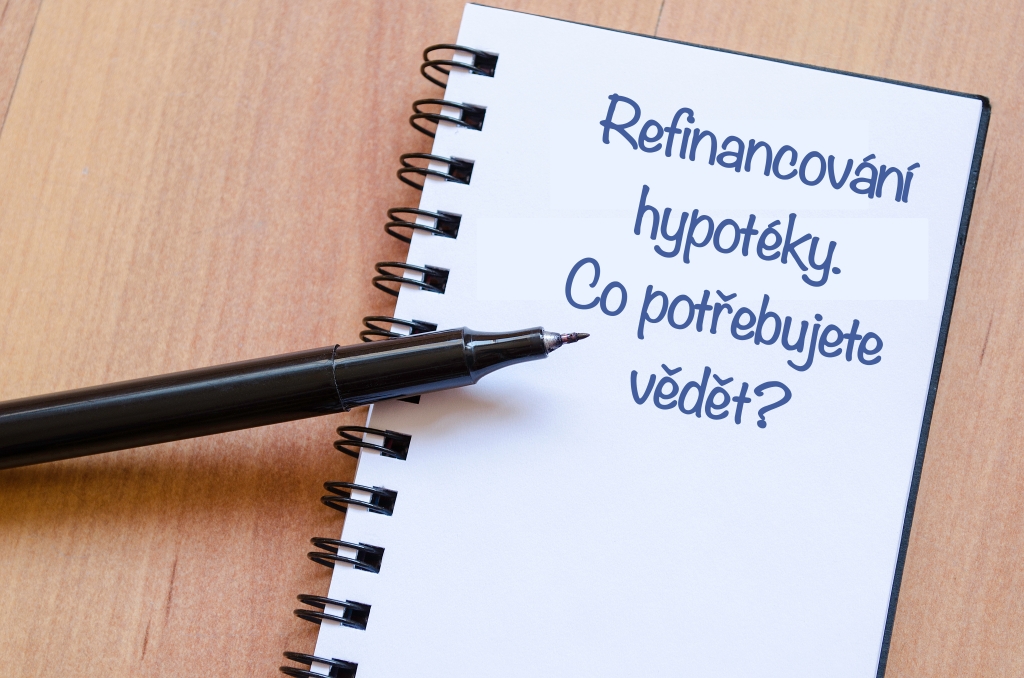 Refinancování
hypotéky.
Co potřebujete
vědět?